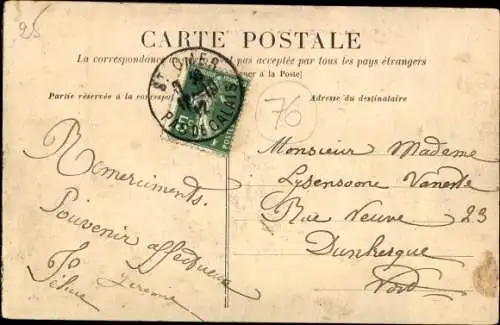 25
CARTE POSTALE
La correspondance pas acceptée par tous les pays étrangers
à la Poste)
Partie réservée à la corresp
Adresse du destinataire
ST OMER
PAS DE CALAIS
76
Monsieur Madame
Rue Neuve 23
Dunkerque
Nord
Remerciments.
Souvenir affectueux